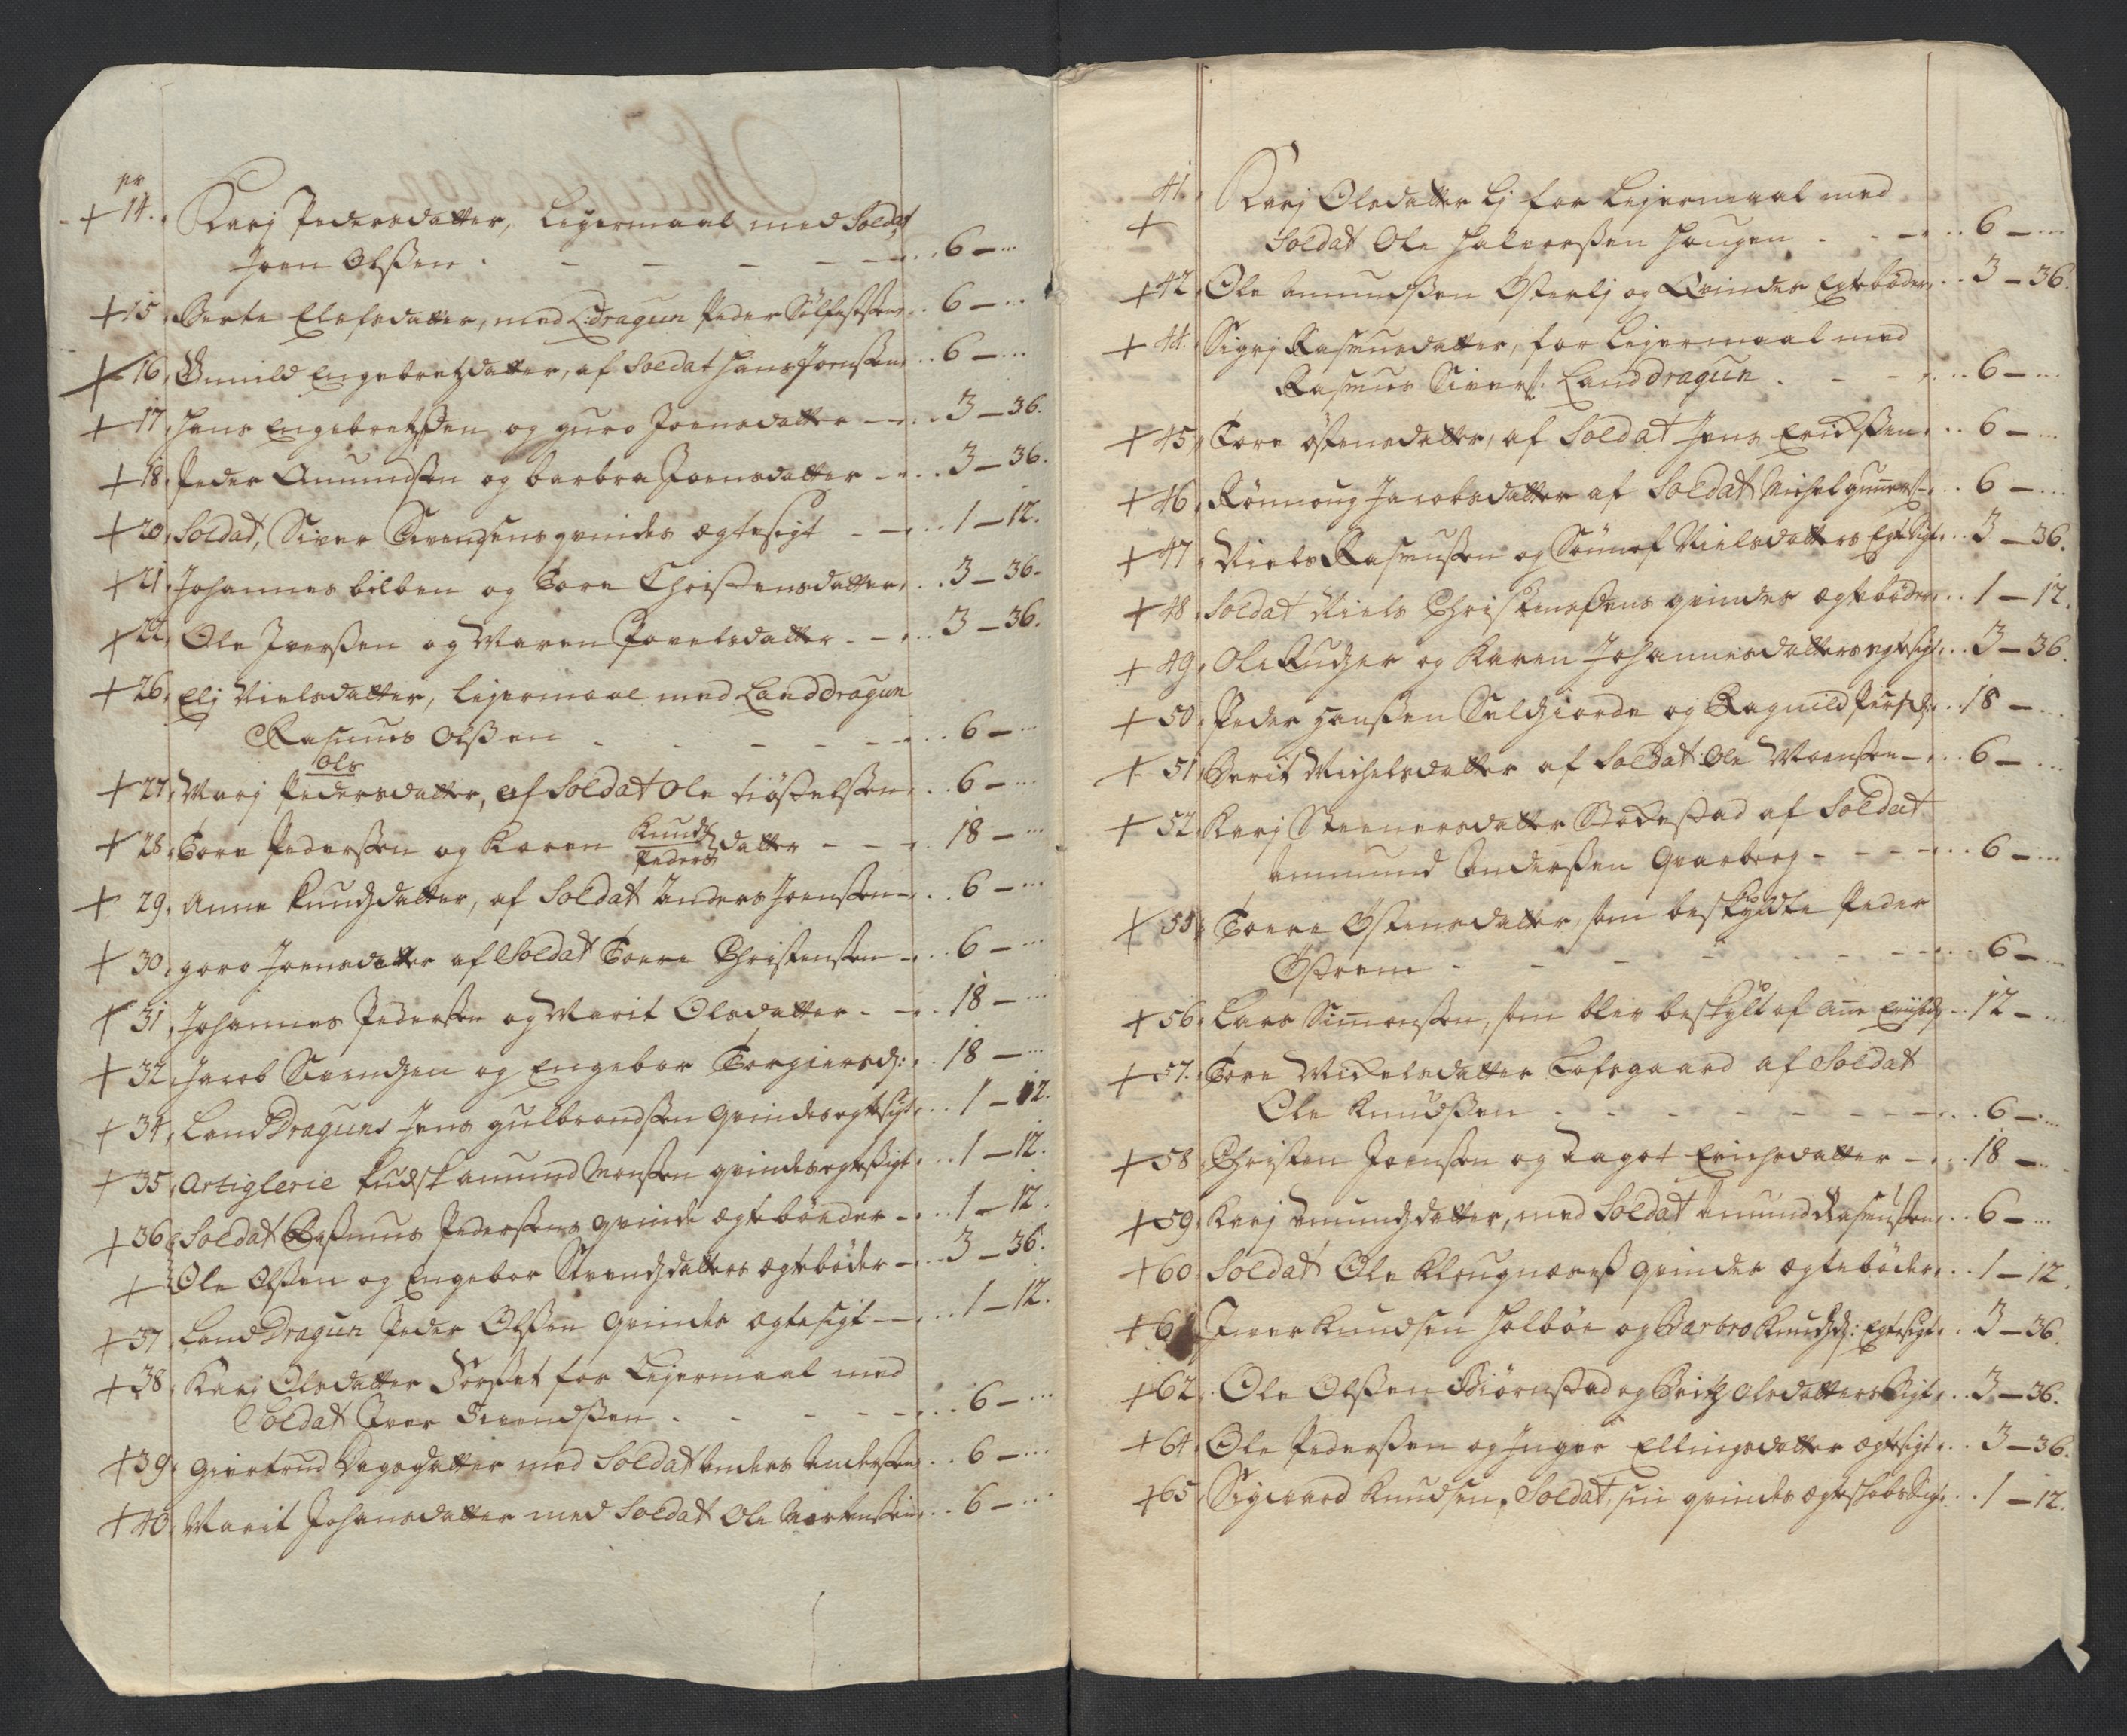 nr
+ 14. Karj Pedersdatter, Leyermaal med Soldat
Joen Olßen . . . . . 6 –
+ 15. Berte Elefsdatter, med L: dragun Peder Sölfestßen . . 6 –
+ 16. Gunild Engebretzdatter, af Soldat Hans Joenßen . . 6 –
+ 17. Hans Engebretßen og guro Joensdatter – . . 3 – 36.
+ 18. Peder Amundßen og barbra Joensdatter – . . 3 – 36.
+ 20. Soldat, Siver Svendsens qvindes ægtesigt – . . 1 – 12.
+ 21. Johannes bilben og Tore Christensdatter . . 3 – 36.
+ 22. Ole Iverßen og Maren Povelsdatter – . . 3 – 36.
+ 26. Elj Nielsdatter, Leyermaal med Landdragun
Rasmus Olßen . . . . . 6 –
Ols
+ 27. Marj Pedersdatter, af Soldat Ole tiöstelßen . . 6 –
+ 28. Tore Pederßen og Karen Knudz Peders datter – – . 18 –
+ 29. Anne Knudzdatter, af Soldat Anders Joenßen . . 6 –
+ 30. goro Joensdatter af Soldat Toere Christenßen – . . 6 –
+ 31. Johannes Pederßen og Marit Olsdatter – . . 18 –
+ 32. Jacob Svendzen og Engebor Torgiersd: . . 18 –
+ 34. Land Draguns Jens gulbrandßen qvindes egtesigt . . 1 – 12.
+ 35. Artiglerie Kudsk amund Monßen qvindes egtesigt . . 1 – 12.
+ 36. Soldat Rasmus Pederßens qvinde ægtebøeder – . . 1 – 12.
+ Ole Olßen og Engebor Svendzdatters ægtebøder – . . 3 – 36.
+ 37. Land Dragun Peder Olßen qvindes ægtesigt – . . 1 – 12.
+ 38. Karj Olsdatter Sorset for Leyermaal med
Soldat Iver Svendßen . . . . . 6 –
+ 39. giertrud Dagsdatter med Soldat Anders Anderßen . . 6 –
+ 40. Marit Johansdatter med Soldat Ole Mortenßen . . 6 –
41. Karj Olsdatter Lj for Leyermaal med
+ Soldat Ole Halvorßen Haugen . . . . 6 –
+ 42. Ole Amundßen Østerlj og Qvindes Egtebøder . . 3 – 36.
+ 44. Sigrj Rasmusdatter, for Leyermaal med
Rasmus Sivers: Land dragun . . . . 6 –
+ 45. Tore östensdatter, af Soldat Jens Erichßen . . 6 –
+ 46. Rönnoug Jacobsdatter af Soldat Michel guners: . . 6 –
+ 47. Niels Rasmußen og Sönnef Nielsdatters Egtsigt . . 3 – 36.
+ 48. Soldat Niels Christenßens qvindes ægtebøder . . 1 – 12.
+ 49. Ole Rudzer og Karen Johannesdatters egtesigt . . 3 – 36.
+ 50. Peder Hanßen Selziorde og Ragnild Persd: . . 18 –
+ 51. Berit Michelsdatter af Soldat Ole Monßen – . . 6 –
+ 52. Karj Steenersdatter Stokestad af Soldat
Ammund Anderßen Qvarberg – – . . 6 –
+ 55. Toere Østensdatter, som beskyldte Peder
Østrem – – . . 6 –
+ 56. Lars Simonßen, som blev beskylt af Ane Erichsd: . . 12 –
+ 57. Tore Mickelsdatter Lofsgaard af Soldat
Ole Knudßen – – . . 6 –
+ 58. Christen Joenßen og Dagot Erichsdatter – . . 18 –
+ 59. Karj Amundzdatter, med Soldat Amund Rasmußen . . 6 –
+ 60. Soldat Ole Klougnæset qvindes ægtebøder . . 1 – 12
+ 61. Iver Knudsen Holböe og Barbro Knudzd: Egtesigt . . 3 – 36.
+ 62. Ole Olßen Biörnstad og Britz Olsdatters Sigt . . 3 – 36.
+ 64. Ole Pederßen og Inger Ellingsdatter ægtesigt . . 3 – 36.
+ 65. Sigvard Knudsen, Soldat, sin qvindes ægteskabs Sigt . . 1 – 12.